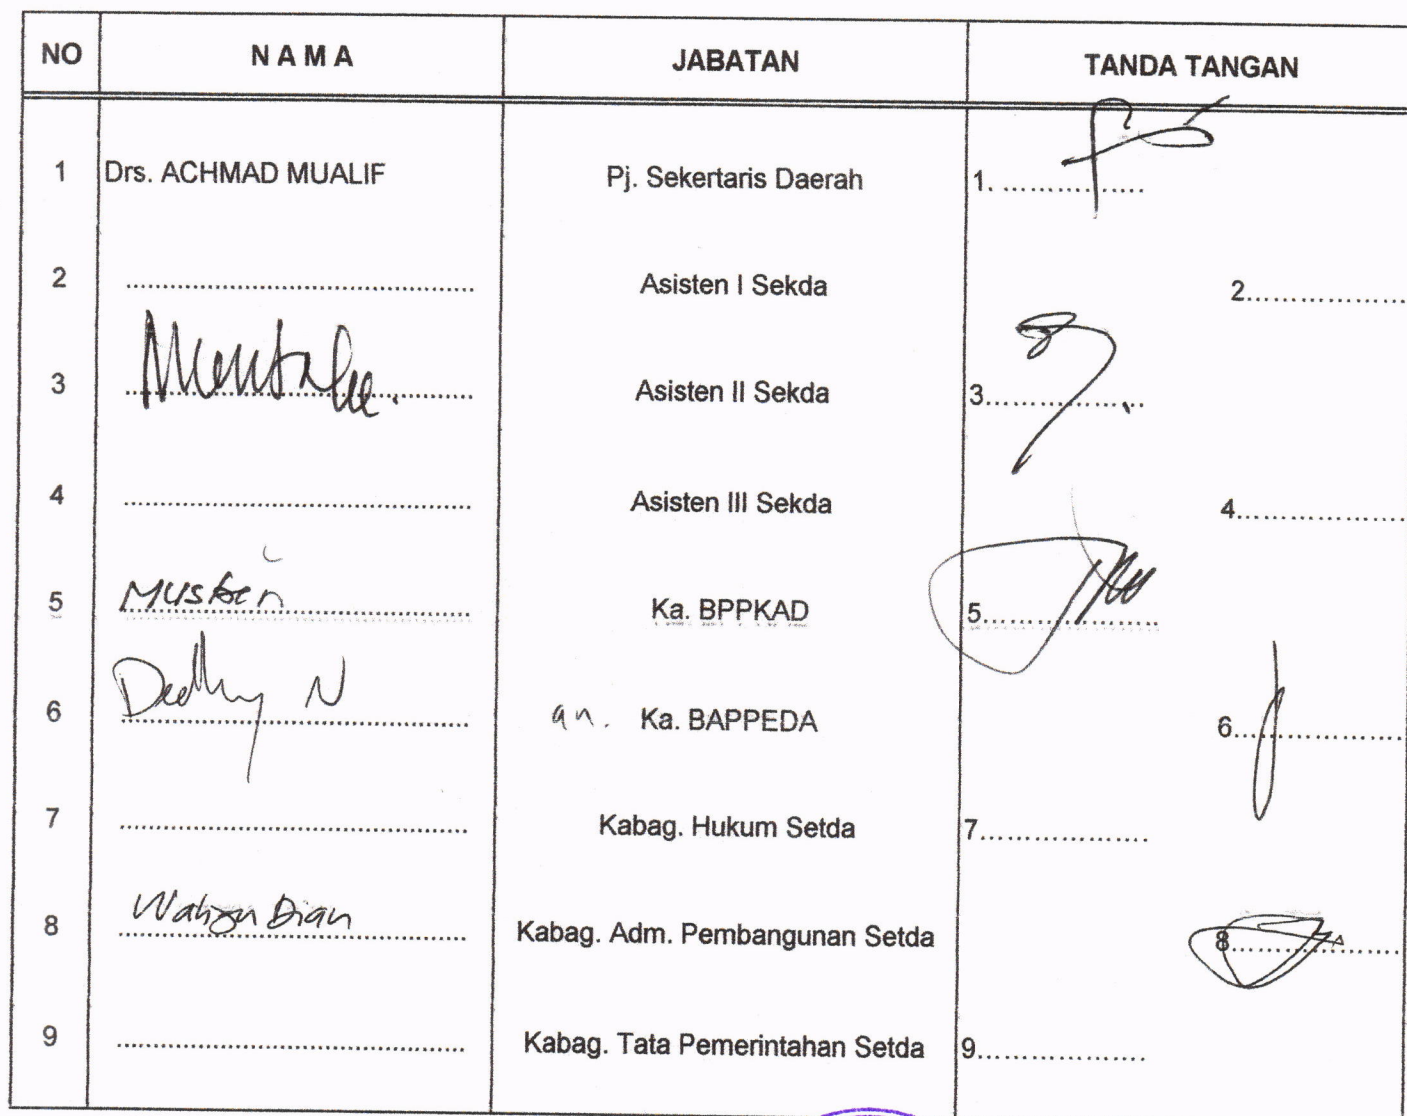 NO N A M A JABATAN TANDA TANGAN
1 Drs. ACHMAD MUALIF Pj. Sekertaris Daerah 1. ................
2 ........................................ Asisten I Sekda 2................
3 ........................................ Asisten II Sekda 3................
4 ........................................ Asisten III Sekda 4................
5 ........................................ Ka. BPPKAD 5................
6 Dedhy N an. Ka. BAPPEDA 6................
7 ........................................ Kabag. Hukum Setda 7................
8 Wahyu Dian Kabag. Adm. Pembangunan Setda 8................
9 ........................................ Kabag. Tata Pemerintahan Setda 9................